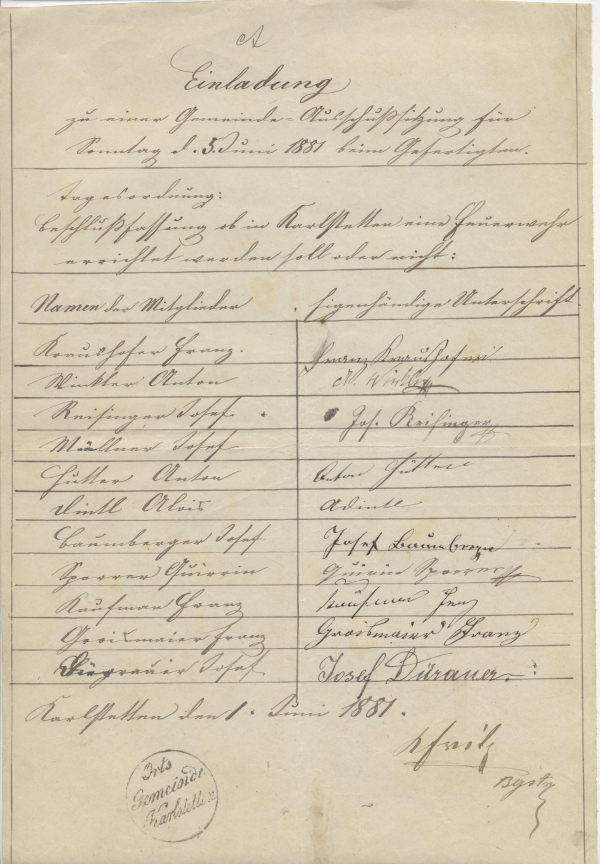 Einladung
zu einer Gemeinde-Ausschußsitzung für
Sonntag d. 5. Juni 1881 beim Gefertigten.
Tagesordnung:
Beschlußfassung ob in Karlstetten eine Feuerwehr
errichtet werden soll oder nicht:
Namen der Mitglieder
Eigenhändige Unterschrift.
Kraushofer Franz.
Franz Kraushofer
Winkler Anton
A. Winkler
Reisinger Josef
Jos. Reisinger
Müllner Josef
Hutter Anton
Anton Hütter
Dintl Alois
ADintl
Baumberger Josef
Josef Baumberger
Sporrer Quirrin
Quirin Sporrer
Kaufman Franz
Groißmaier Franz
Groißmaier Franz
Josef
Josef Dürauer
Karlstetten den 1. Juni 1881.
Bgstr
Orts
Gemeinde
Karlstetten